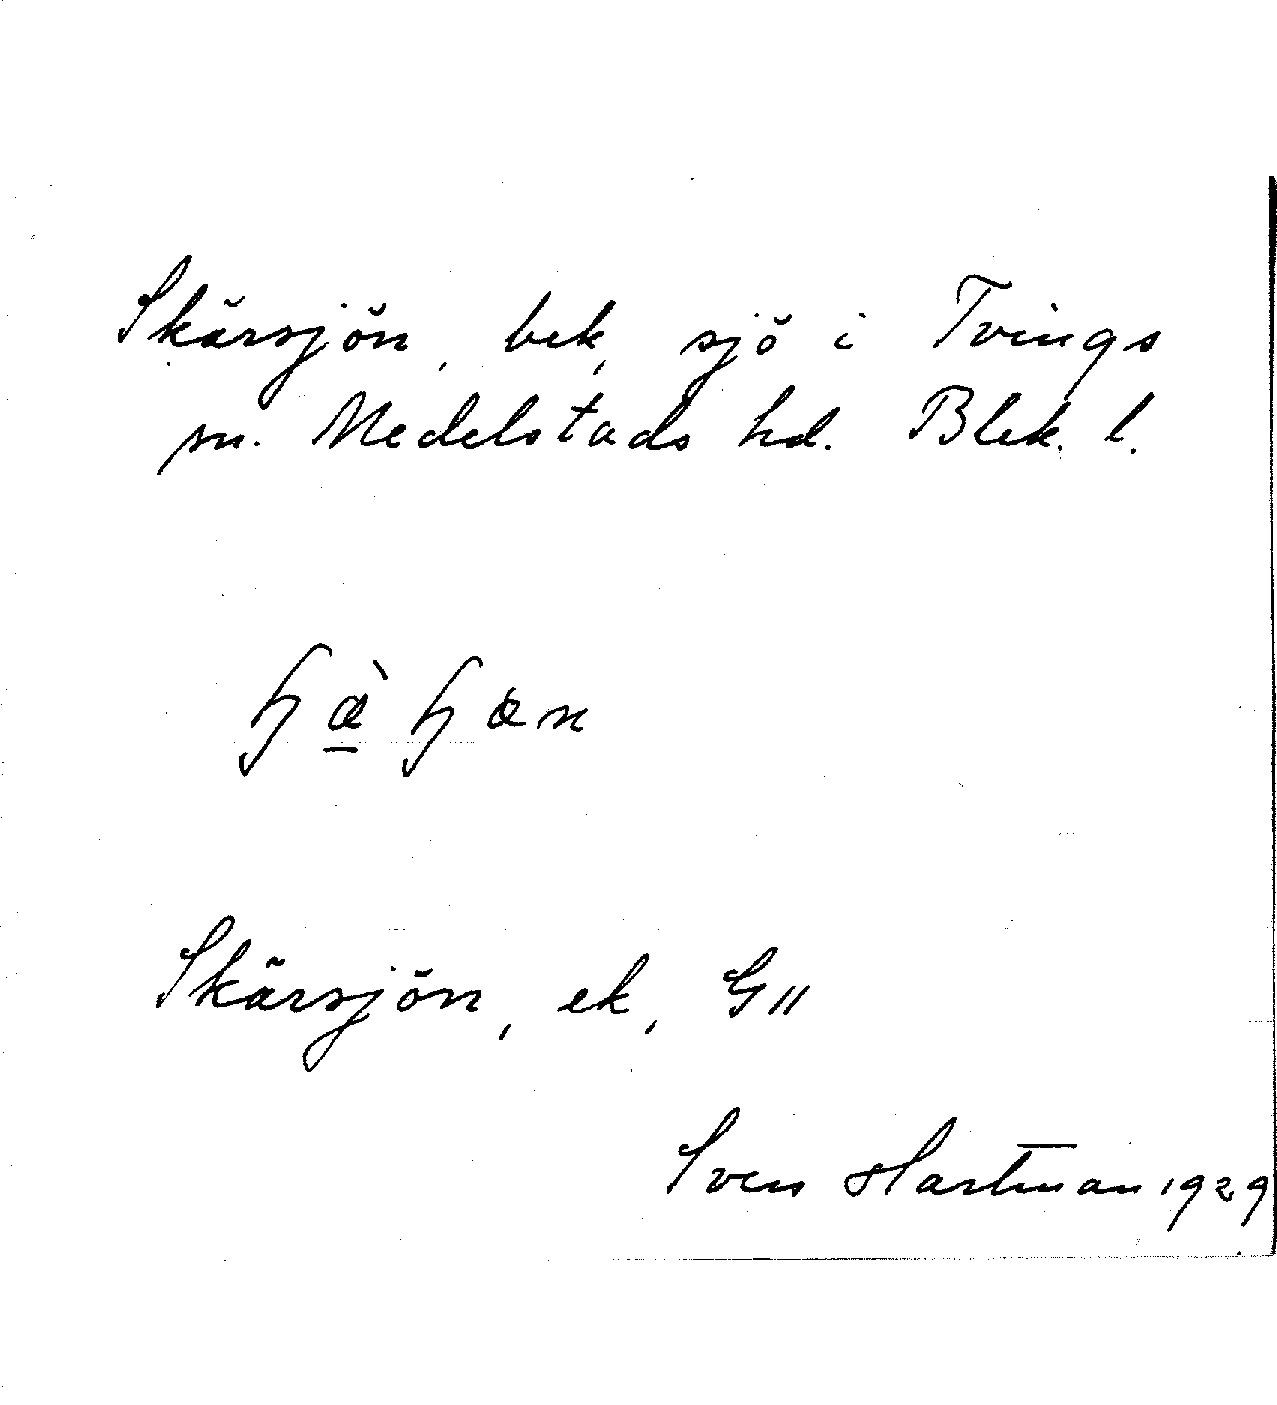 Skärsjön, bek, sjö i Tvings
sn. Medelstads hd. Blek. l.
ɧæ̲̀ɧœn
Skärsjön, ek, G11
Sven Hartman 1929